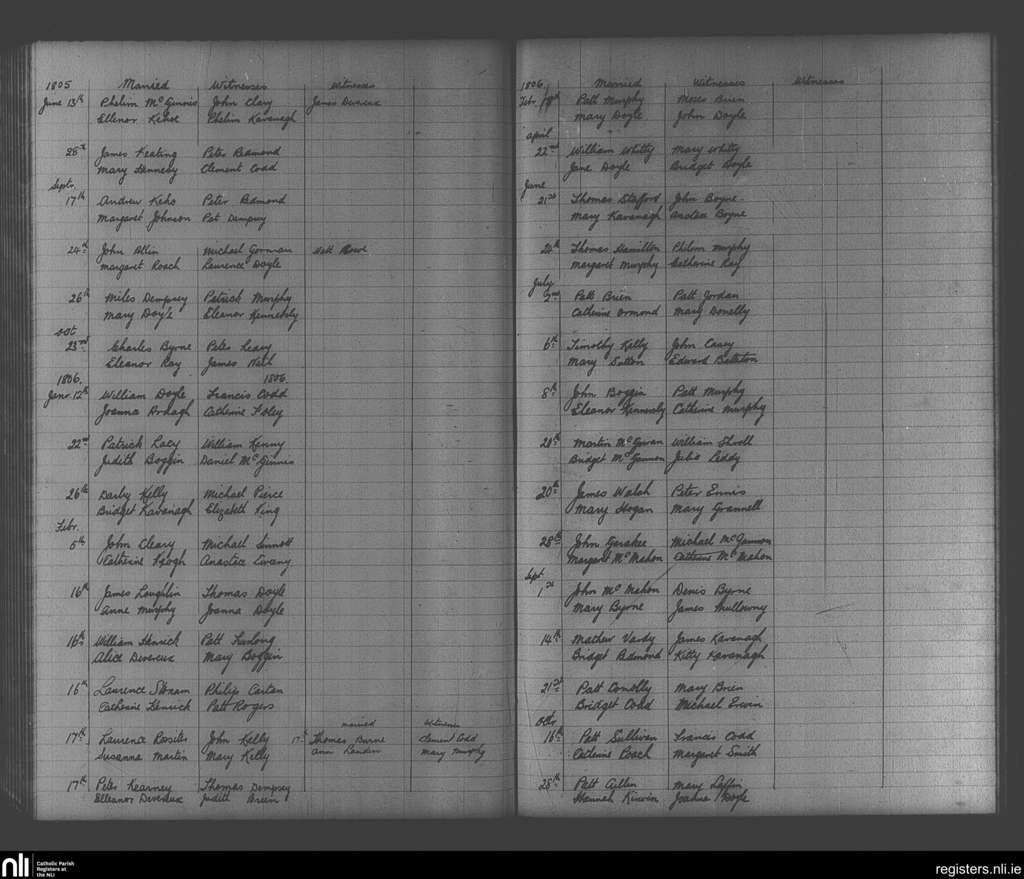 1805 Married Witnesses Witnesses
June 13th Phelim McGinnis John Clary James Devereux
Ellenor Kehoe Phelim Kavanagh
28th James Keating Peter Redmond
Mary Kennedy Clement Codd
Septr.
17th Andrew Keho Peter Redmond
Margaret Johnson Pat Dempsey
24th John Michael Gorman Rowe
Margaret Roach Laurence Doyle
26th Miles Dempsey Patrick Murphy
Mary Doyle Eleanor Kennedy
Oct
23rd Charles Byrne Peter Leary
Eleanor Ray James
1806. 1806.
Janr. 12th William Doyle Francis Codd
Joanna Catherine Foley
22nd Patrick Lacy William Kenny
Judith Boggin Daniel McGinnis
26th Darby Kelly Michael Pierce
Bridget Kavanagh Elizabeth King
Febr.
5th John Cleary Michael Sinnott
Catherine Keogh Anastace
16th James Loughlin Thomas Doyle
Anne Murphy Joanna Doyle
16th William Kenrick Patt Furlong
Alice Devereux Mary Boggin
16th Laurence Philip Cartan
Catherine Kenrick Patt Rogers
married Witnesses
17th Laurence Rositer John Kelly 17th Thomas Burne Clement Codd
Susanna Martin Mary Kelly Ann Mary Murphy
17th Peter Kearney Thomas Dempsey
Elleanor Devereux Judith Breen
1806 Married Witnesses Witnesses
Febr. 18th Patt Murphy Moses Brien
Mary Doyle John Doyle
April
22nd William Whitty Mary Whitty
Jane Doyle Bridget Doyle
June
21st Thomas Stafford John Boyne
Mary Kavanagh Anstace Boyne
24th Thomas Hamilton Philim Murphy
Margaret Murphy Catherine Ray
July
2nd Patt Brien Patt Jordan
Catherine Ormond Mary Donelly
6th Timothy Kelly John Casey
Mary Sutton Edward
8th John Boggin Patt Murphy
Eleanor Kennedy Catherine Murphy
20th Martin McGowan William
Bridget McGannon Julia Leddy
20th James Walsh Peter Ennis
Mary Hogan Mary Grannell
28th John Michael McGannon
Margaret McMahon Catherine McMahon
Sept
1st John McMahon Denis Byrne
Mary Byrne James Mullowny
14th Mathew Vardy James Kavanagh
Bridget Redmond Kitty Kavanagh
21st Patt Conolly Mary Brien
Bridget Codd Michael Erwin
Octr
16th Patt Sullivan Francis Codd
Catherine Roach Margaret Smith
28th Patt Mary Laffin
Hannah Kirwin Joanna Doyle
nli Catholic Parish
Registers at
the NLI
registers.nli.ie